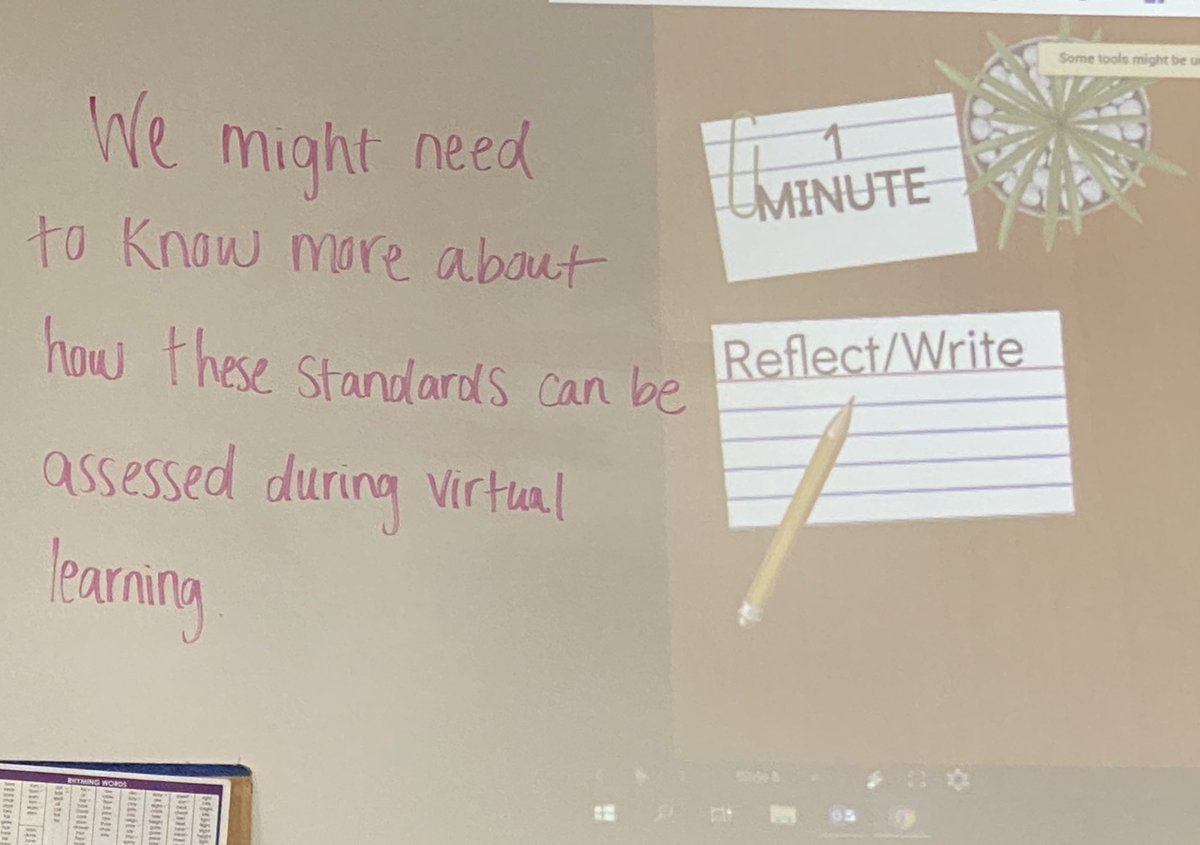 We might need
to know more about
how these standards can be
assessed during virtual
learning.
Some tools might be u
1
MINUTE
Reflect/Write
Slide 6
RHYMING WORDS